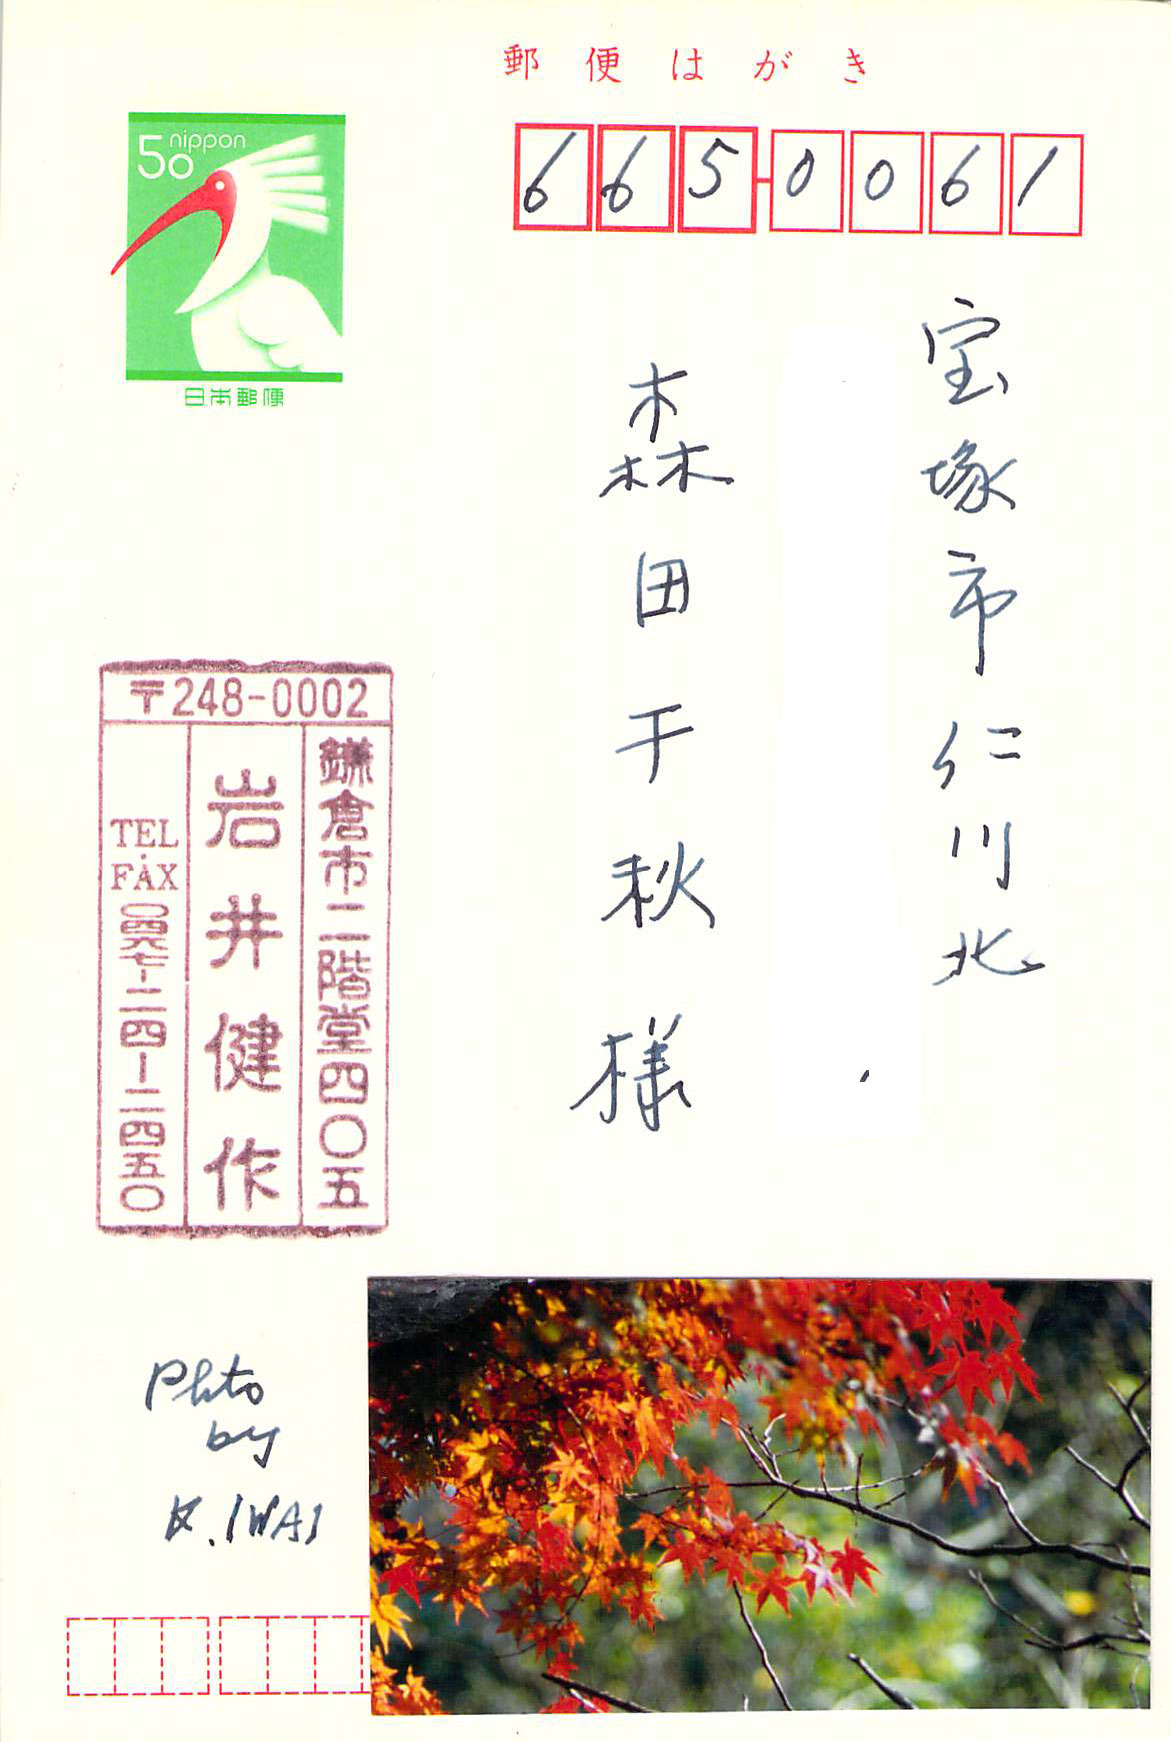 郵便はがき
50 nippon
日本郵便
665-0061
宝塚市仁川北
森田千秋様
〒248-0002
鎌倉市二階堂四〇五
岩井健作
TEL・FAX 〇四六七-二四-二四五〇
Phto
by
K.IWAI